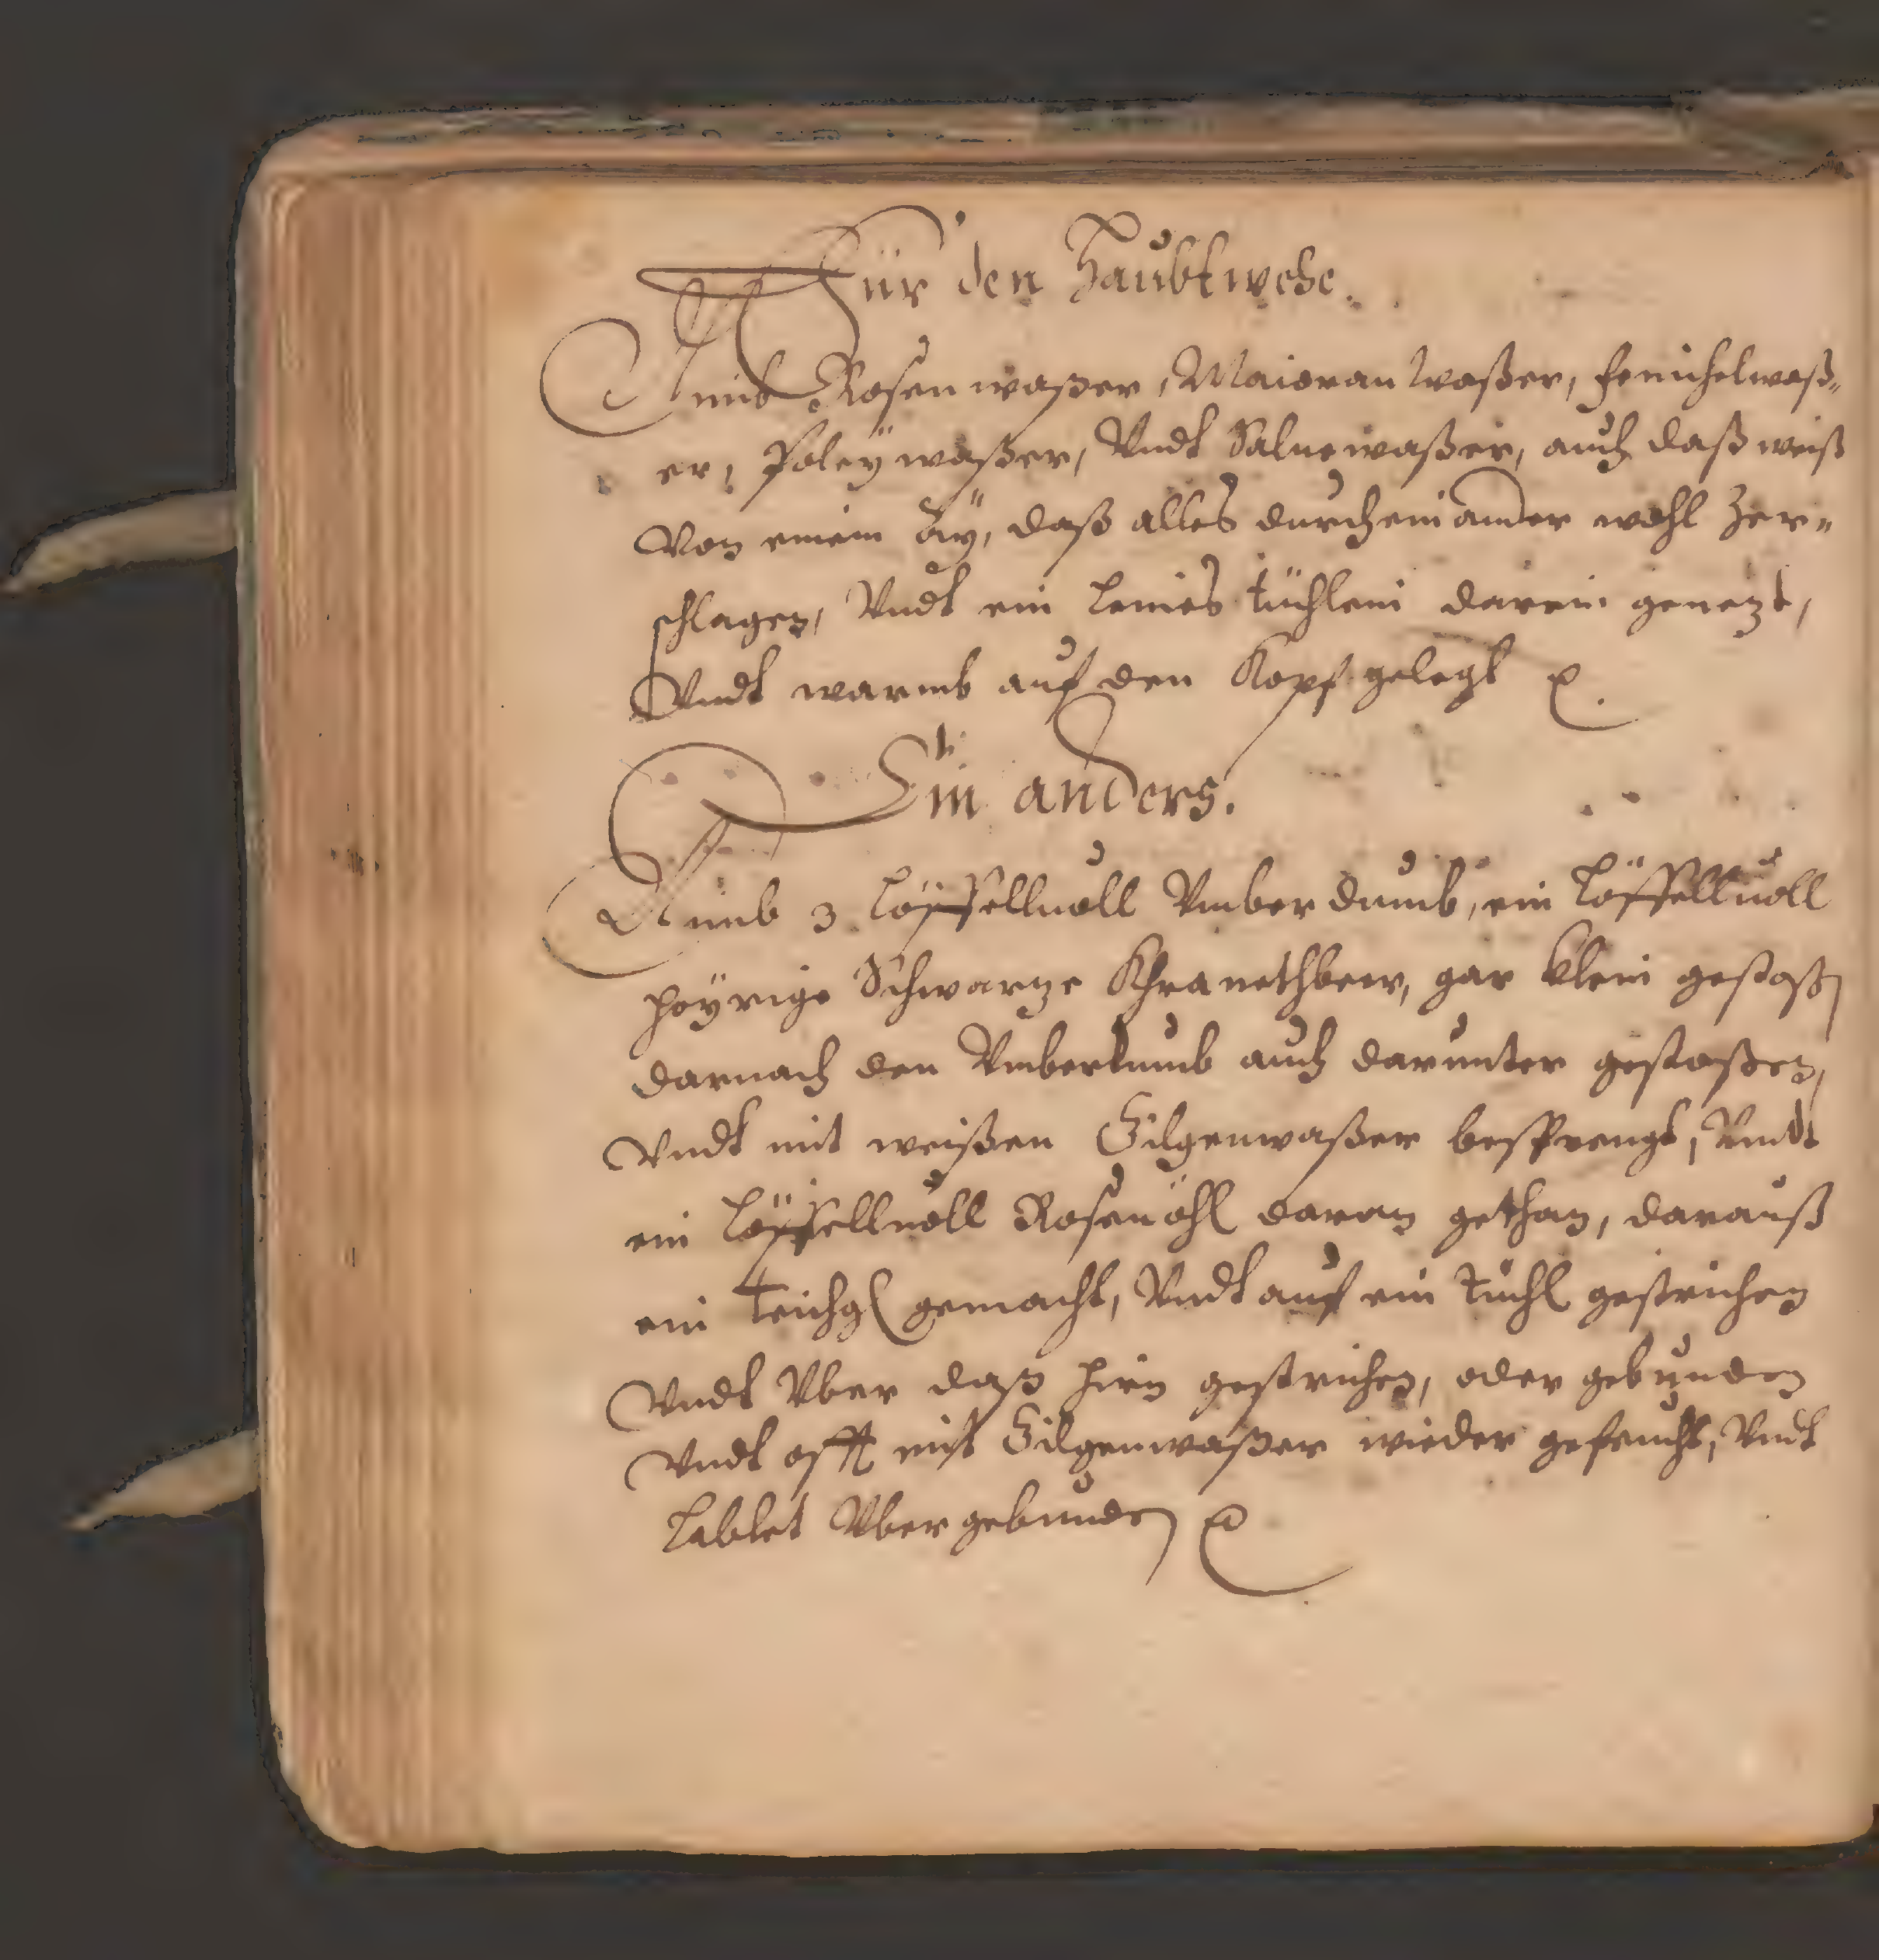 Für den Haubtwehe.
Nimb Rosenwaßer, Maioran Waßer, fenichelwaß=
er, Poleÿwaßer, Vndt Saluewaßer, auch daß weiß
Von einem Aÿ, daß alles durcheinander wohl Zer=
schlagen, Vndt ein leines tüchlein darein genezt,
Vndt warmb auf den Kopf gelegt
Ein anders.
Nimb 3 löffellvoll Vmberdumb, ein löffellvoll
heÿrige Schwarze Khranethbeer, gar klein gestoß
darnach den Vmbertumb auch darunter gestoßen,
Vndt mit weißen Gilgenwaßer besprengt, Vndt
ein löffellvoll Rosenöhl daran gethan, darauß
ein teichgl gemacht, Vndt auf ein tüchl gestrichen
Vndt Vber daß hirn gestrichen, oder gebunden
Vndt offt mit Gilgenwaßer wieder gefeucht, Vndt
lablet Vbergebunden